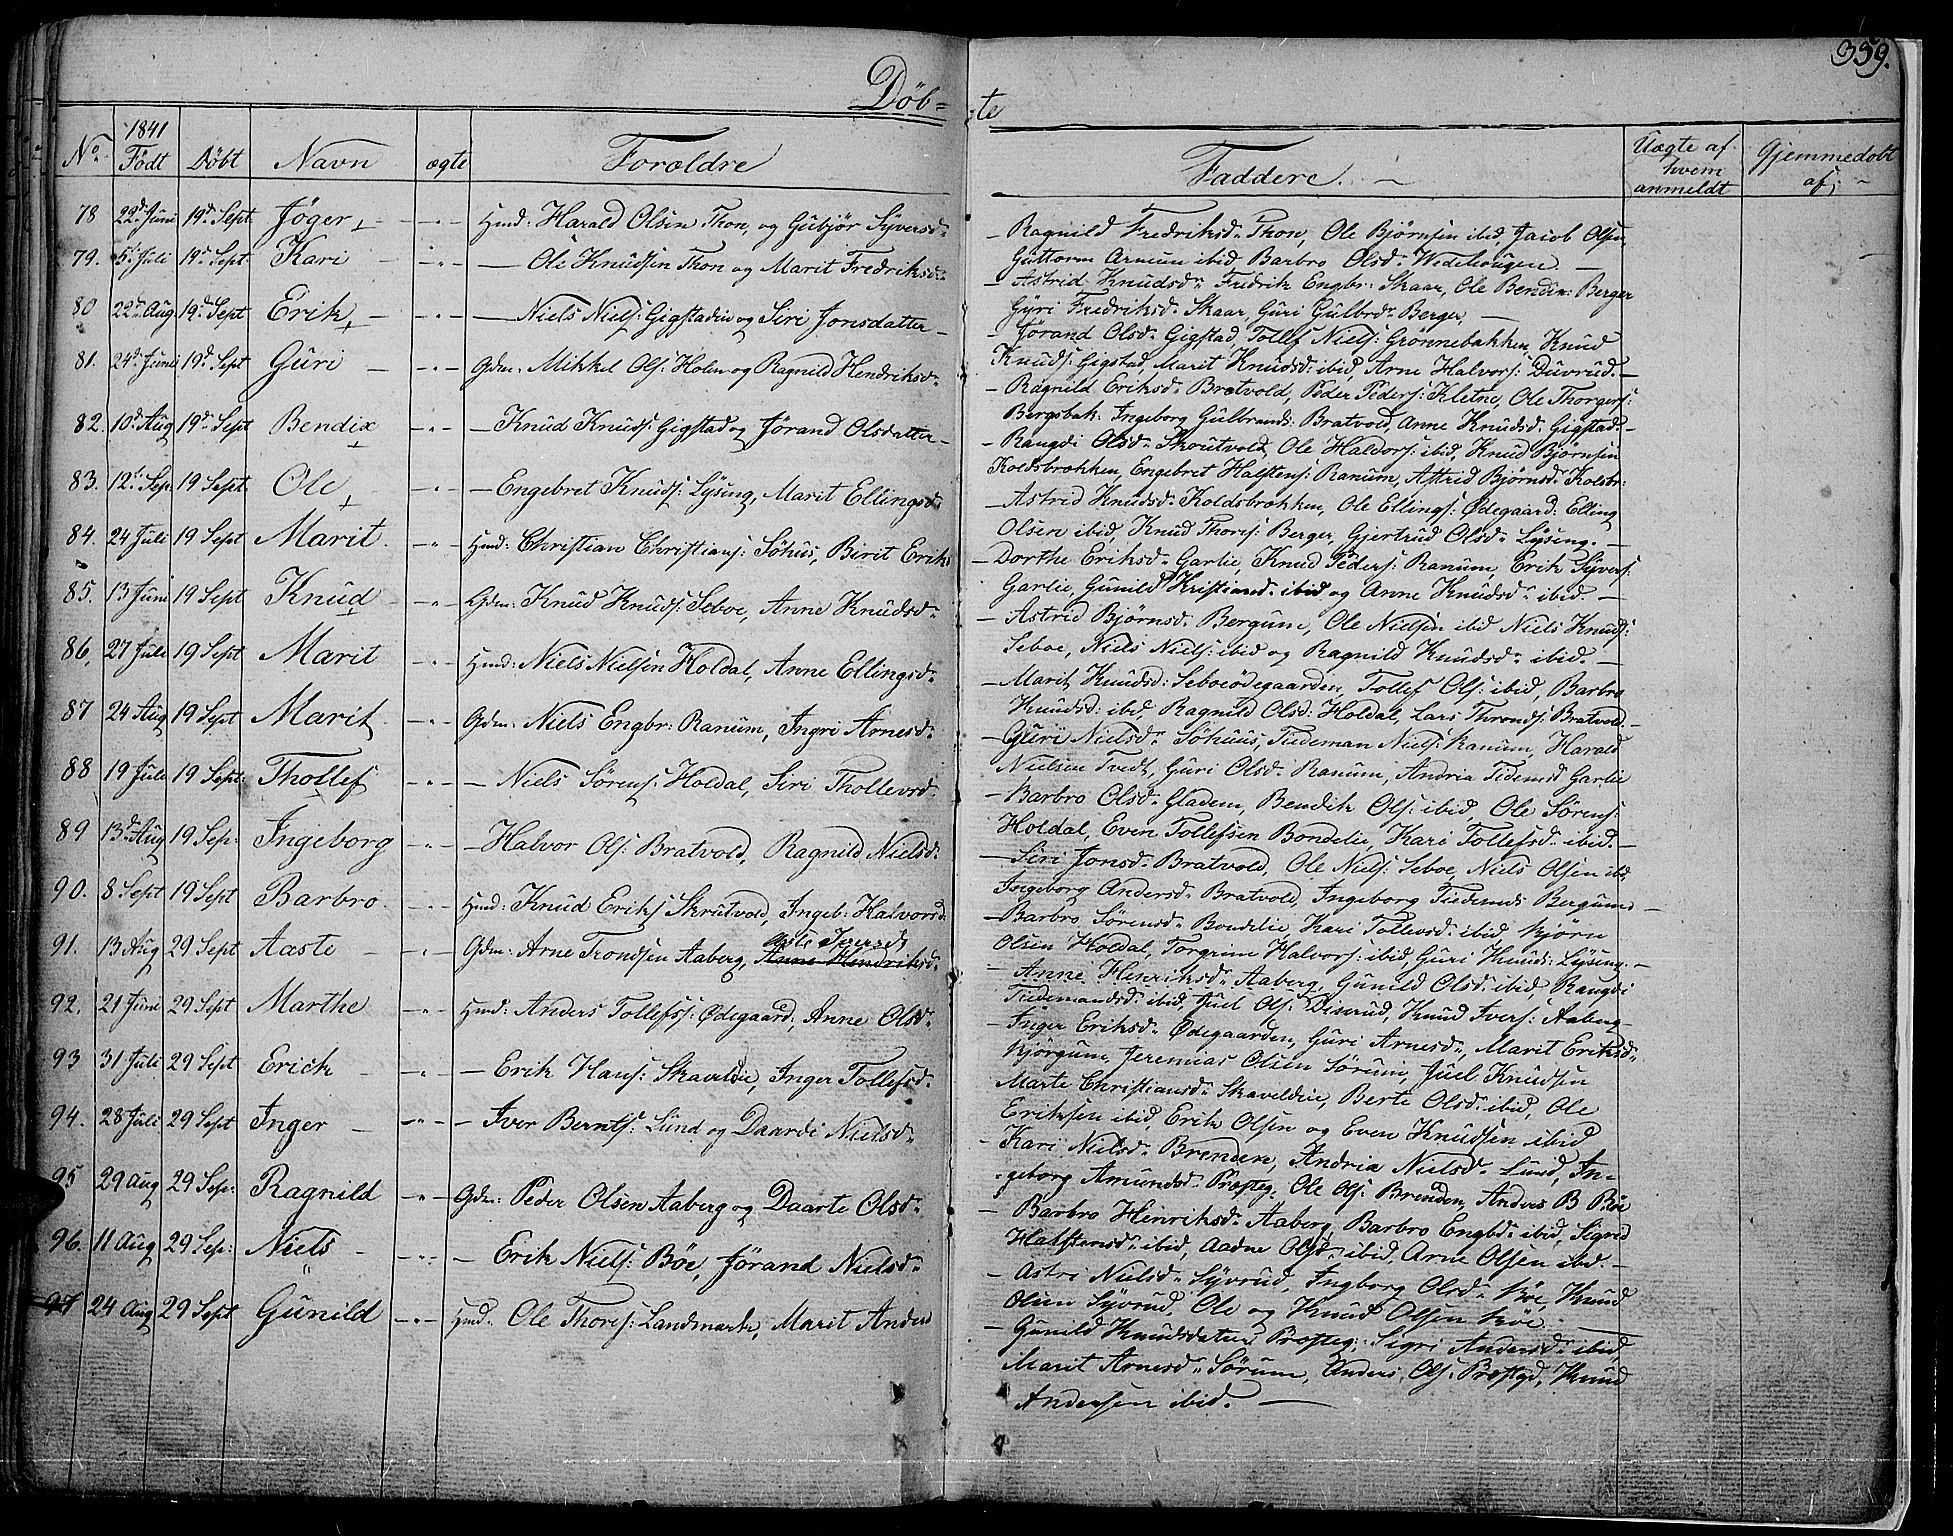 339.
Döb=te
No. 1841 Födt Döbt Navn ægte Forældre
78 22d Juni 19d Sept. Jöger - " - Hmd: Harald Olsen Thon, og Gubjör Syversd.
79. 5t Juli 19d Sept Kari - " - — Ole Knudsen Thon og Marit Fredriksd.
80 22d Aug 19d Sept Erik - " - — Niels Niels: Gigstadin og Siri Jonsdatter
81. 24d Juni 19d Sept Guri - " - Gdm: Mikkel Ols: Holm og Ragnild Hendriksd.
82. 10d Aug 19d Sept Bendix - " - — Knud Knuds: Gigstad og Jörand Olsdatter
83. 12t Sep. 19 Sept. Ole - " - — Engebret Knuds: Lysing, Marit Ellingsd.
84. 24 Juli 19 Sept Marit - " - Hmd: Christian Christians: Söhus, Birit Eriks
85. 13 Juni 19 Sept Knud - " - Gdm: Knud Knuds: Seboe, Anne Knudsd.
86. 27 Juli 19 Sept Marit - " - Hmd: Niels Nielsen Holdal, Anne Ellingsd.
87 24 Aug 19 Sept Marit - " - Gdm: Niels Engbr: Ranum, Ingri Arnesd.
88 19 Juli 19 Sept: Thollef - " - — Niels Sörens: Holdal, Siri Thollevsd.
89 13d Aug 19 Sep: Ingeborg - " - — Halvor Ols: Bratvold, Ragnild Nielsd.
90. 8 Sept 19 Sept Barbro - " - Hmd: Knud Eriks Skrutvold, Ingeb: Halvorsd.
Aste Iversd
91. 13 Aug 29 Sept Aaste - " - Gdm: Arne Trondsen Aaberg, Anne Hendriksd.
92. 21 Juni 29 Sept Marthe - " - Hmd: Anders Tollefss: Ödegaard: Anne Olsd.
93 31 Juli 29 Sept Erick - " - — Erik Hans: Skaveldie, Inger Tollefsd.
94. 28 Juli 29 Sept Inger - " - — Iver Bernts: Lund og Daardi Nielsd.
95 29 Aug 29 Sep: Ragnild - " - Gdm: Peder Olsen Aaberg og Daarte Olsd.
96. 11 Aug 29 Sep: Niels - " - — Erik Niels: Böe, Jörand Nielsd.
97 24 Aug 29 Sept Gunild - " - Hmd: Ole Thores: Landmark, Marit Anders
Faddere. Uægte af hvem anmeldt Gjemmedobt af;
— Ragnild Fredriksd. Thon, Ole Björnsen ibid, Jacob Olsen
Guttorm Arnum ibid Barbro Olsd. Wedehougen. —
— Astrid Knudsd. Fredrik Engbr: Skaar, Ole Bendix: Berger
Gyri Fredriksd. Skaar, Guri Gulbrd. Berger. —
— Jörand Olsd. Gigstad, Tollef Niels: Grönnebakken, Knud
Knuds: Gigstad, Marit Knudsd: ibid, Arne Halvors: Duvrud. —
— Ragnild Eriksd. Bratvold, Peder Peders: Kletne, Ole Thorgers:
Bergsbak: Ingeborg Gulbrands: Bratvold, Anne Knudsd: Gigstad. —
— Rangdi Olsd. Skrutvold, Ole Haldors: ibid, Knud Björnsen
Koldsbrökken, Engebret Halstens: Ranum, Astrid Björnsd. Kolsbr:
— Astrid Knudsd. Koldsbrökken, Ole Ellings: Ödegaard: Elling
Olsen ibid, Knud Thores: Berger, Gjertrud Olsd. Lysing. —
— Dorthe Eriksd. Garlie, Knud Peders: Ranum, Erik Syvers:
Garlie, Gunild Kristiansd. ibid og Anne Knudsd. ibid. —
— Astrid Björnsd. Bergum, Ole Nielsen ibid Niels Knuds:
Seboe, Niels Niels: ibid og Ragnild Knudsd. ibid. —
— Marit Knudsd: Seboeödegaarden, Tollef Ols: ibid, Barbro
Knudsd: ibid, Ragnild Olsd: Holdal, Lars Thronds: Bratvold —
— Guri Nielsd. Söhuus, Tiedeman Niels: Ranum, Harald
Nielsen Tvedt, Guri Olsd. Ranum, Andria Tidemsd Garlie
— Barbro Olsd. Gladem, Bendik Ols: ibid, Ole Sörens:
Holdal, Even Tollefsen Bondelie, Kari Tollefsd. ibid. —
— Siri Jonsd. Bratvold, Ole Niels: Seboe, Niels Olsen ibd
Ingeborg Andersd. Bratvold, Ingeborg Tiedemds Bergum. —
— Barbro Sörensd. Bondelie, Kari Tollevsd. ibid Björn
Olsen Holdal, Torgrim Halvors: ibid Guri Knud: Lysing. —
— Anne Henriksd. Aaberg, Gunild Olsd. ibid, Rangdi
Tiedemandsd. ibid, Juel Ols: Disrud, Knud Ivers: Aaberg —
— Inger Eriksd. Ödegaarden, Guri Arnesd., Marit Eriksd.
Björgum, Jeremias Olsen Sörum, Juel Knudsen
Marte Christiansd. Skaveldie, Berte Olsd. ibid, Ole
Eriksen ibid, Erik Olsen og Even Knudsen ibid
— Kari Nielsd. Brenden, Andria Nielsd. Lund, In-
geborg Amundsd. Præsteg, Ole Ols: Brenden, Anders B Böe
— Barbro Henriksd. Aaberg, Barbro Engbd. ibid, Sigrid
Halstensd. ibid, Aadne Olsd. ibid, Arne Olsen ibd. —
— Astri Nielsd. Syvrud, Ingborg Olsd. Böe, Knud
Olsen Syvrud, Ole og Knud Olsen Böe. —
— Gunild Knudsdatter Præsteg: Sigri Andersd. ibid,
Marit Arnesd. Sörum, Anders Ols: Præstgd, Knud
Andersen ibid. —